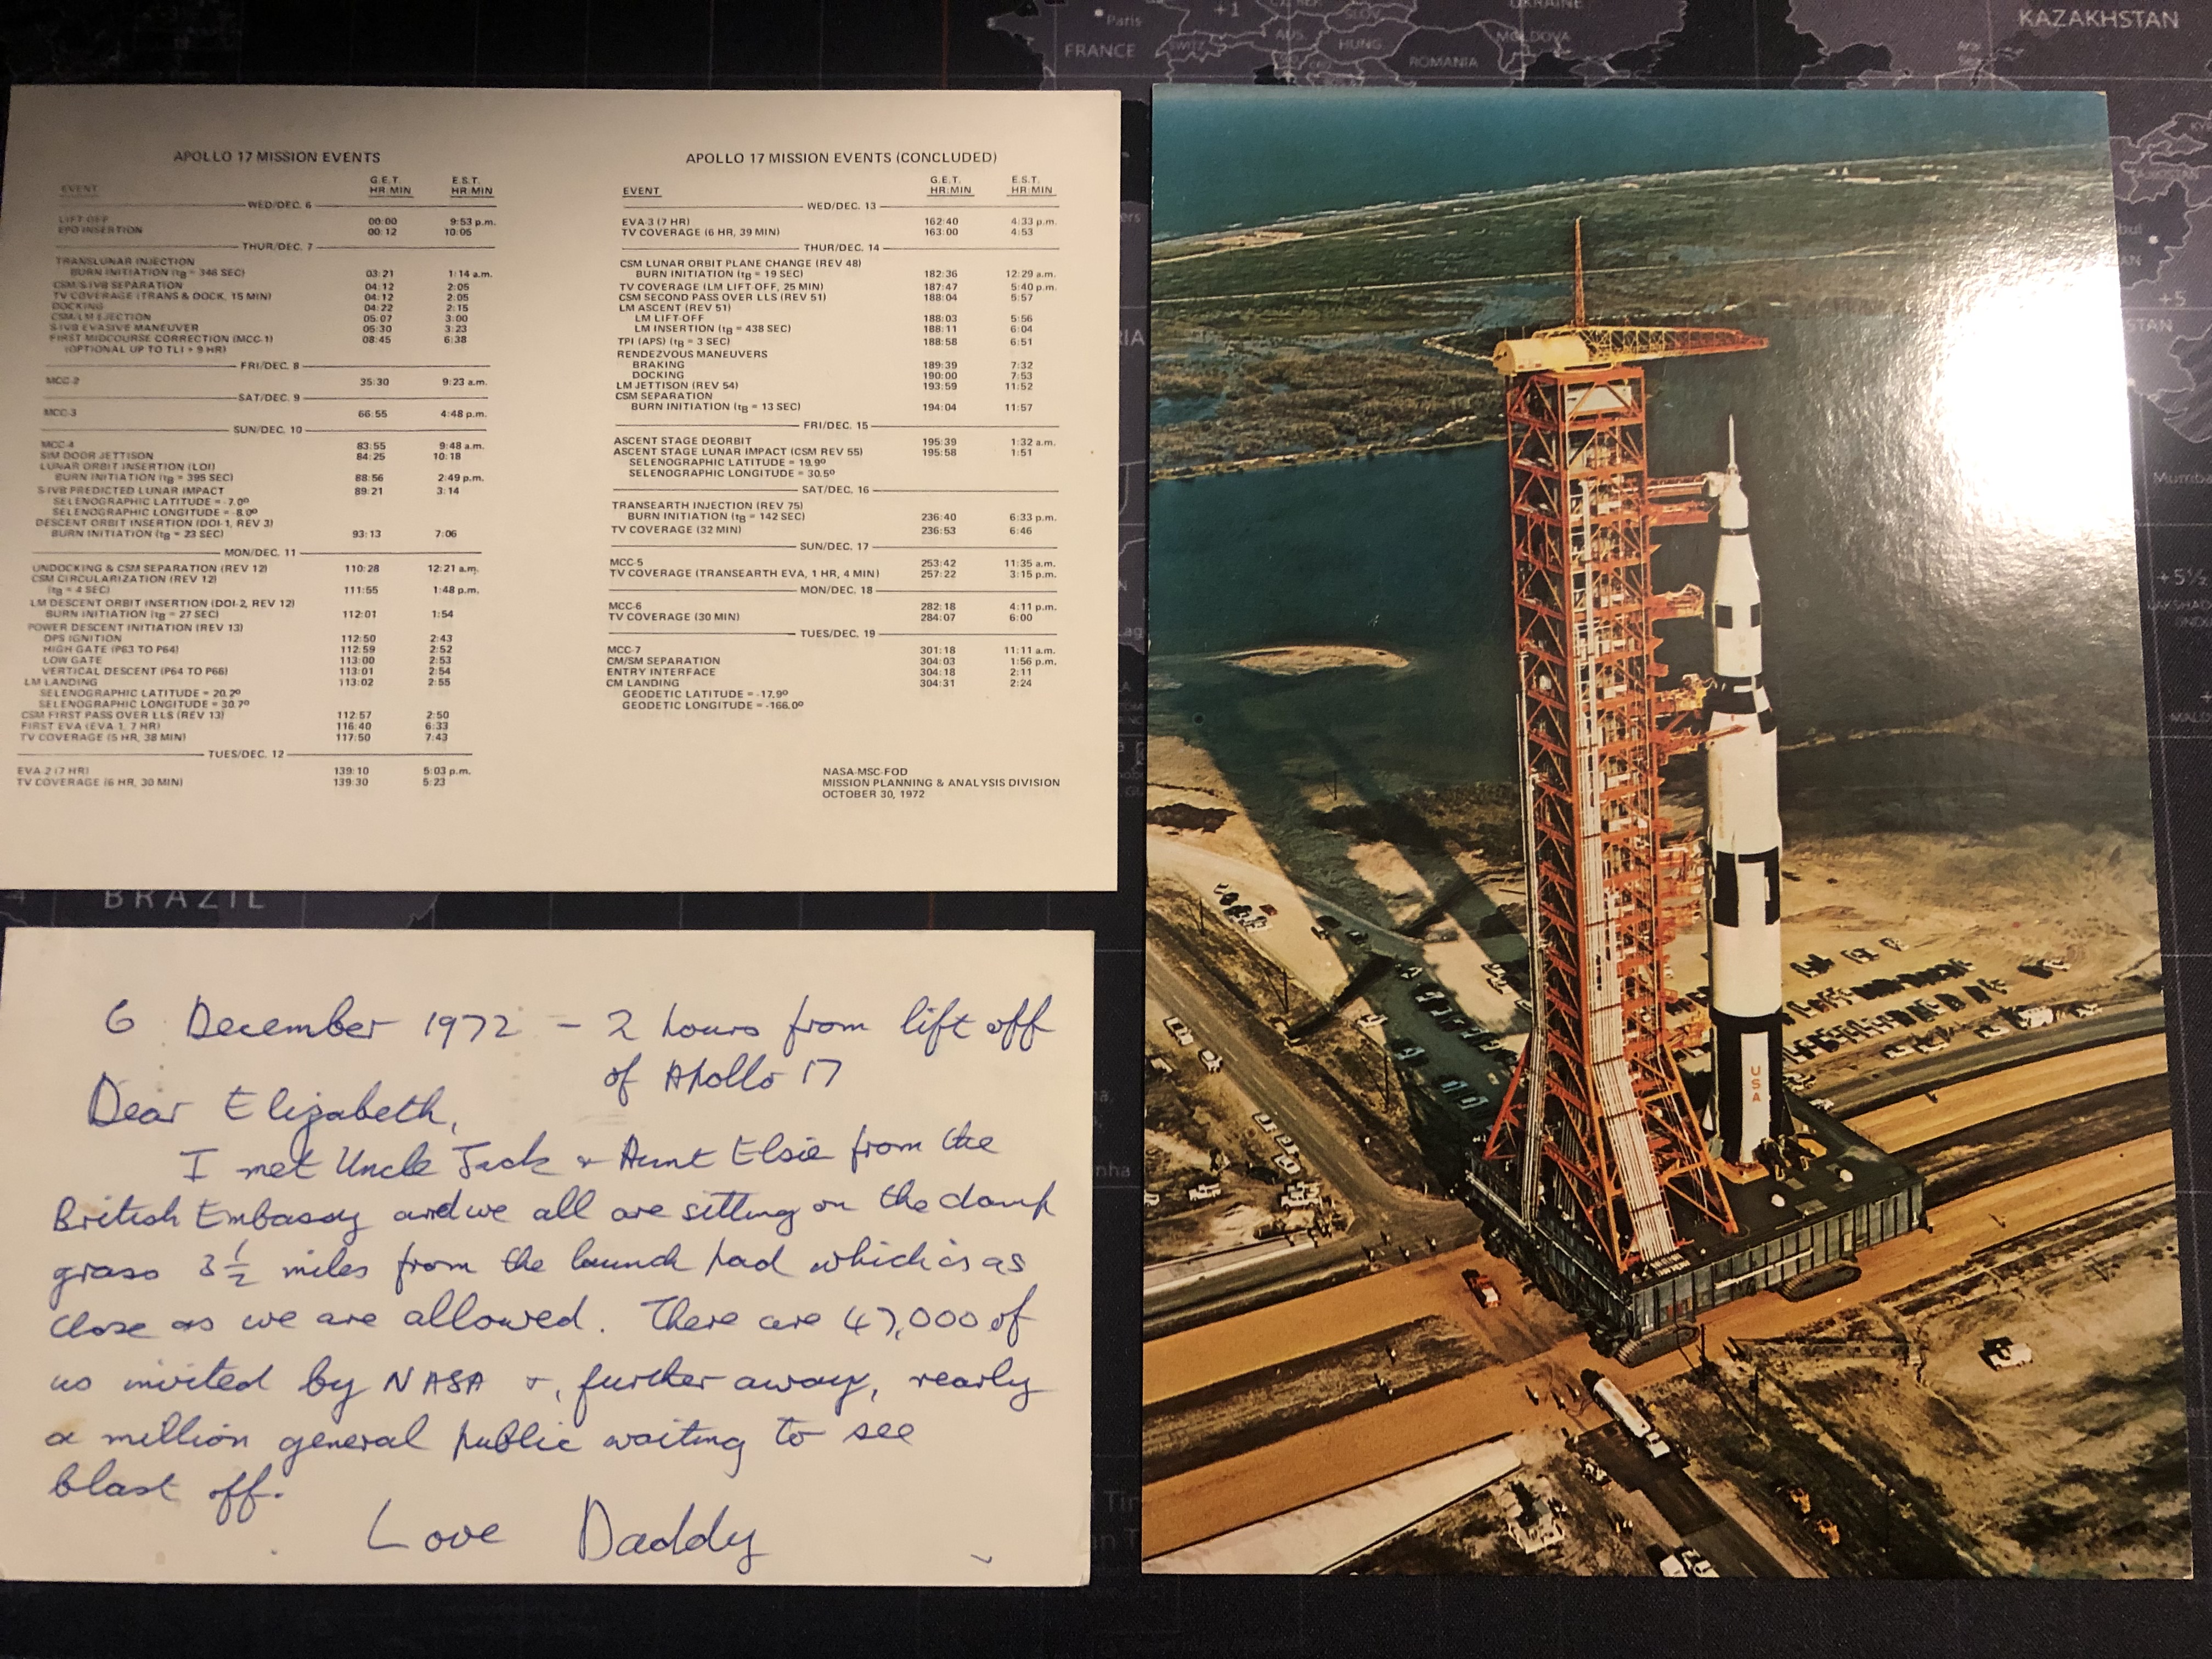 APOLLO 17 MISSION EVENTS
EVENT G.E.T. HR:MIN E.S.T. HR:MIN
WED/DEC. 6
LIFT OFF 00:00 9:53 p.m.
EPO INSERTION 00:12 10:05
THUR/DEC. 7
TRANSLUNAR INJECTION 03:21 1:14 a.m.
BURN INITIATION (tB = 346 SEC)
CSM/S-IVB SEPARATION 04:12 2:05
TV COVERAGE (TRANS & DOCK, 15 MIN) 04:12 2:05
DOCKING 04:22 2:15
CSM/LM EJECTION 05:07 3:00
S-IVB EVASIVE MANEUVER 05:30 3:23
FIRST MIDCOURSE CORRECTION (MCC-1) 08:45 6:38
(OPTIONAL UP TO TLI + 9 HR)
FRI/DEC. 8
MCC-2 35:30 9:23 a.m.
SAT/DEC. 9
MCC-3 66:55 4:48 p.m.
SUN/DEC. 10
MCC-4 83:55 9:48 a.m.
SIM DOOR JETTISON 84:25 10:18
LUNAR ORBIT INSERTION (LOI) 88:56 2:49 p.m.
BURN INITIATION (tB = 395 SEC)
S-IVB PREDICTED LUNAR IMPACT 89:21 3:14
SELENOGRAPHIC LATITUDE = -7.0°
SELENOGRAPHIC LONGITUDE = -8.0°
DESCENT ORBIT INSERTION (DOI-1, REV 3) 93:13 7:06
BURN INITIATION (tB = 23 SEC)
MON/DEC. 11
UNDOCKING & CSM SEPARATION (REV 12) 110:28 12:21 a.m.
CSM CIRCULARIZATION (REV 12) 111:55 1:48 p.m.
(tB = 4 SEC)
LM DESCENT ORBIT INSERTION (DOI-2, REV 12) 112:01 1:54
BURN INITIATION (tB = 27 SEC)
POWER DESCENT INITIATION (REV 13)
DPS IGNITION 112:50 2:43
HIGH GATE (P63 TO P64) 112:59 2:52
LOW GATE 113:00 2:53
VERTICAL DESCENT (P64 TO P66) 113:01 2:54
LM LANDING 113:02 2:55
SELENOGRAPHIC LATITUDE = 20.2°
SELENOGRAPHIC LONGITUDE = 30.7°
CSM FIRST PASS OVER LLS (REV 13) 112:57 2:50
FIRST EVA (EVA 1, 7 HR) 116:40 6:33
TV COVERAGE (5 HR, 38 MIN) 117:50 7:43
TUES/DEC. 12
EVA-2 (7 HR) 139:10 5:03 p.m.
TV COVERAGE (6 HR, 30 MIN) 139:30 5:23
APOLLO 17 MISSION EVENTS (CONCLUDED)
EVENT G.E.T. HR:MIN E.S.T. HR:MIN
WED/DEC. 13
EVA-3 (7 HR) 162:40 4:33 p.m.
TV COVERAGE (6 HR, 39 MIN) 163:00 4:53
THUR/DEC. 14
CSM LUNAR ORBIT PLANE CHANGE (REV 48) 182:36 12:29 a.m.
BURN INITIATION (tB = 19 SEC)
TV COVERAGE (LM LIFT OFF, 25 MIN) 187:47 5:40 p.m.
CSM SECOND PASS OVER LLS (REV 51) 188:04 5:57
LM ASCENT (REV 51)
LM LIFT-OFF 188:03 5:56
LM INSERTION (tB = 438 SEC) 188:11 6:04
TPI (APS) (tB = 3 SEC) 188:58 6:51
RENDEZVOUS MANEUVERS
BRAKING 189:39 7:32
DOCKING 190:00 7:53
LM JETTISON (REV 54) 193:59 11:52
CSM SEPARATION 194:04 11:57
BURN INITIATION (tB = 13 SEC)
FRI/DEC. 15
ASCENT STAGE DEORBIT 195:39 1:32 a.m.
ASCENT STAGE LUNAR IMPACT (CSM REV 55) 195:58 1:51
SELENOGRAPHIC LATITUDE = 19.9°
SELENOGRAPHIC LONGITUDE = 30.5°
SAT/DEC. 16
TRANSEARTH INJECTION (REV 75) 236:40 6:33 p.m.
BURN INITIATION (tB = 142 SEC)
TV COVERAGE (32 MIN) 236:53 6:46
SUN/DEC. 17
MCC-5 253:42 11:35 a.m.
TV COVERAGE (TRANSEARTH EVA, 1 HR, 4 MIN) 257:22 3:15 p.m.
MON/DEC. 18
MCC-6 282:18 4:11 p.m.
TV COVERAGE (30 MIN) 284:07 6:00
TUES/DEC. 19
MCC-7 301:18 11:11 a.m.
CM/SM SEPARATION 304:03 1:56 p.m.
ENTRY INTERFACE 304:18 2:11
CM LANDING 304:31 2:24
GEODETIC LATITUDE = -17.9°
GEODETIC LONGITUDE = -166.0°
NASA-MSC-FOD
MISSION PLANNING & ANALYSIS DIVISION
OCTOBER 30, 1972
6 December 1972 - 2 hours from lift off
of Apollo 17
Dear Elizabeth,
I met Uncle Jack & Aunt Elsie from the
British Embassy and we all are sitting on the damp
grass 3½ miles from the launch pad which is as
close as we are allowed. There are 47,000 of
us invited by NASA &, further away, nearly
a million general public waiting to see
blast off.
Love Daddy
USA
BRAZIL
FRANCE
Paris
ROMANIA
KAZAKHSTAN